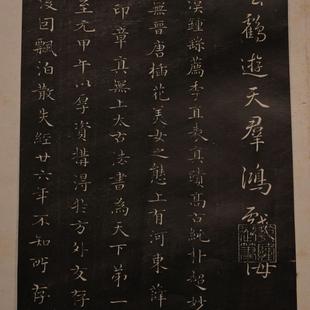 鶴遊天羣鴻戲海
漢鍾繇薦季直表真蹟高古純朴超妙
無晉唐插花美女之態上有河東薛
印章真無上太古法書為天下第一
至元甲午以厚貲購得於方外友存
後因飄泊散失經廿六年不知所存